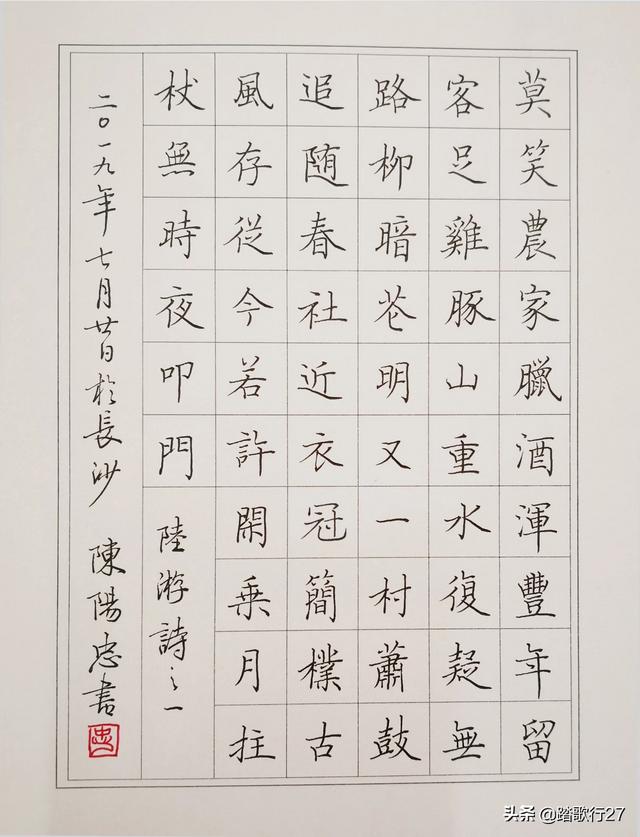 莫笑農家臘酒渾豐年留
客足雞豚山重水復疑無
路柳暗花明又一村蕭鼓
追随春社近衣冠簡樸古
風存從今若許閑乗月拄
杖無時夜叩門
陸游詩之一
二〇一九年七月廿日於長沙 陳陽忠書
忠
头条 @踏歌行27